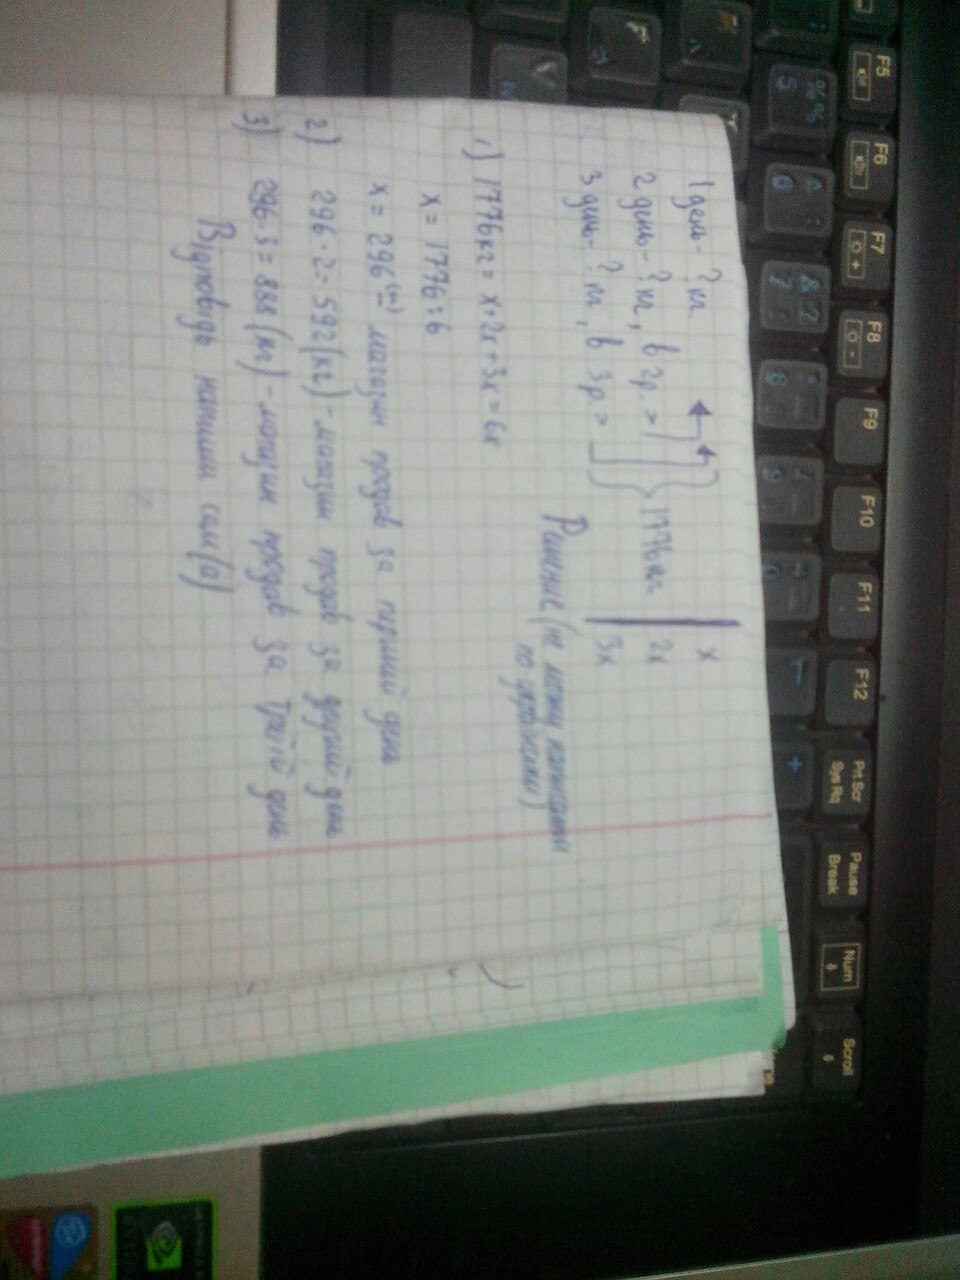 1 день - ? кг
2 день - ? кг, в 2р. >
3 день - ? кг, в 3р >
1776 кг
x
2x
3x
Решение (не могу написати
по українски)
1) 1776 кг = x+2x+3x = 6x
x = 1776:6
x = 296 (кг) - магазин продав за перший день
2) 296·2 = 592 (кг) - магазин продав за другий день
3) 296·3 = 888 (кг) - магазин продав за третій день
Відповідь напиши сам(а)
F5
F6
F7
F8
F9
F10
F11
F12
Prt Scr
Sys Rq
Pause
Break
Num
Scroll